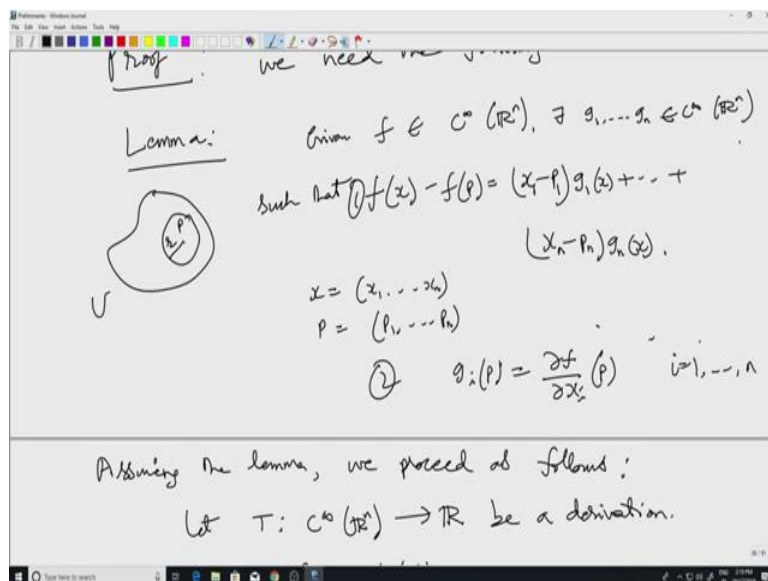 Preliminaries - Windows Journal
File Edit View Insert Actions Tools Help
Proof : we need the following
Lemma: Given f ∈ C^∞ (ℝ^n), ∃ g_1,...g_n ∈ C^∞ (ℝ^n)
such that ① f(x) - f(p) = (x_1-p_1) g_1(x) + ... +
(x_n-p_n) g_n(x).
p
r
U
x = (x_1 ... x_n)
p = (p_1, ... p_n)
② g_i(p) = ∂f/∂x_i (p) i=1, ..., n
Assuming the lemma, we proceed as follows :
Let T: C^∞ (ℝ^n) → ℝ be a derivation.
Type here to search